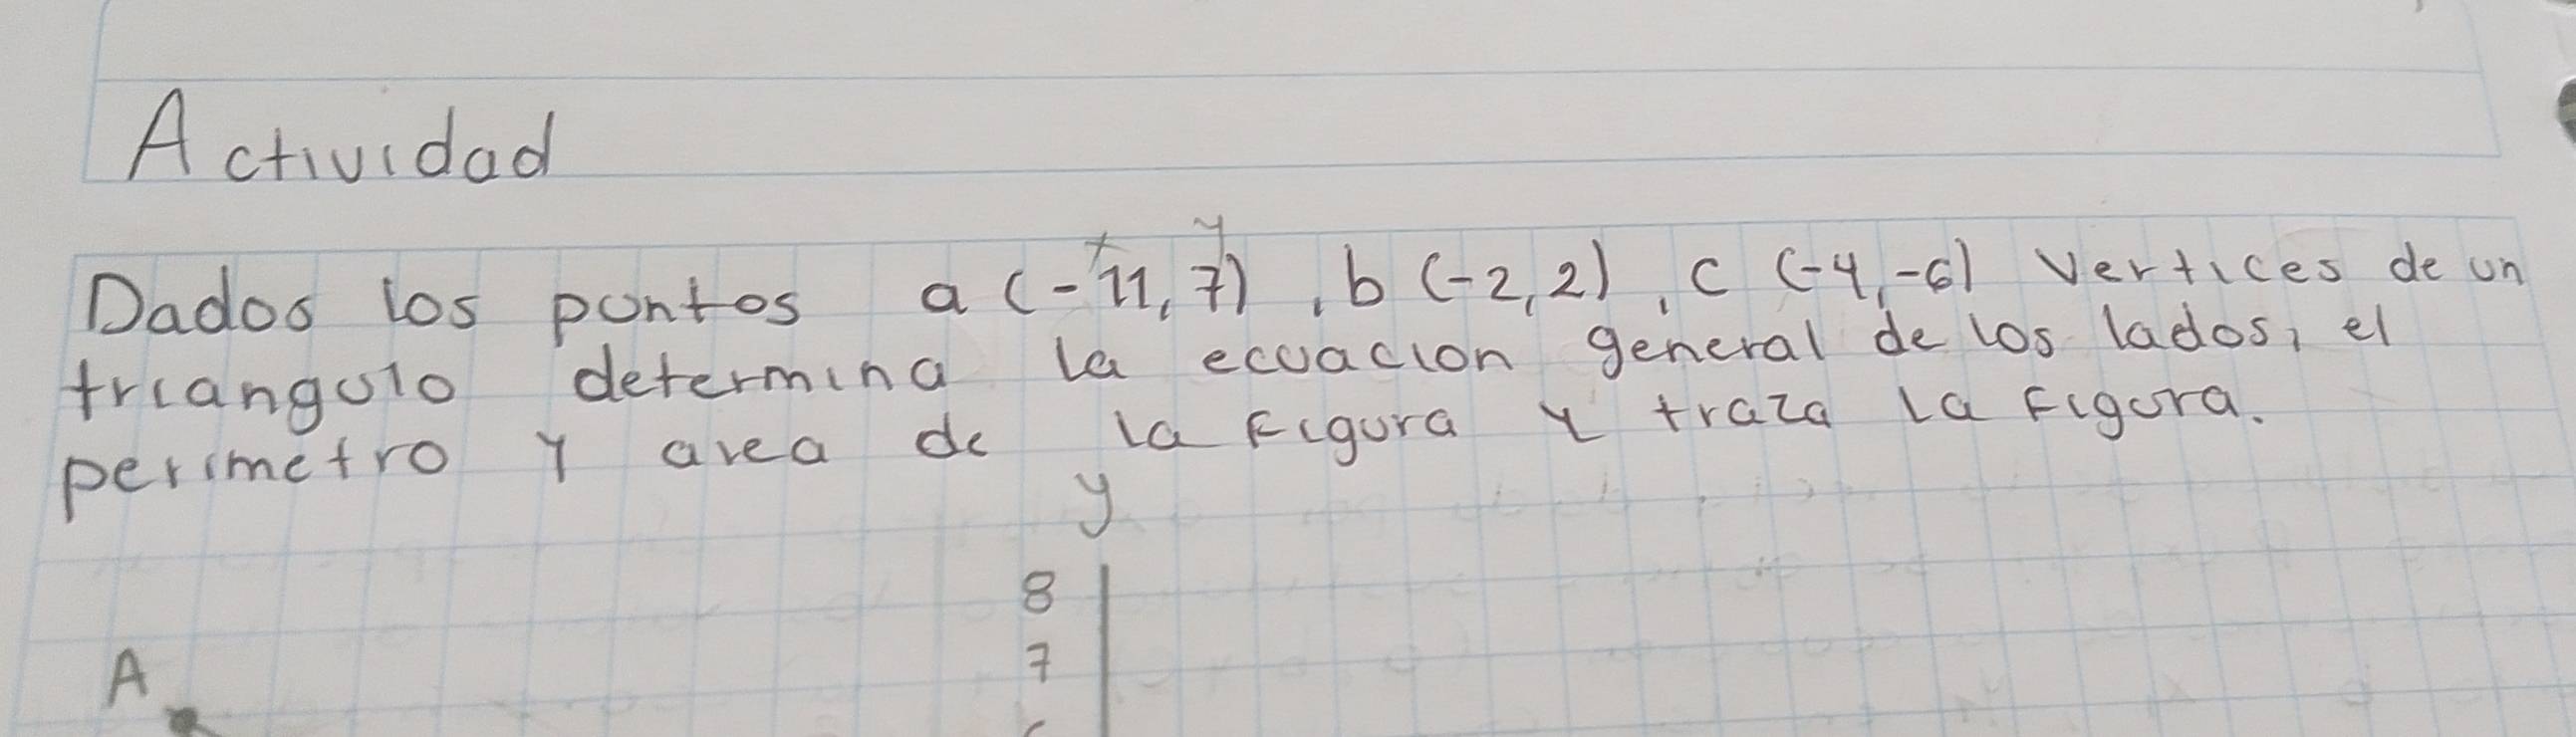 Actividad
x y
Dados los puntos a (-11, 7), b (-2, 2), c (-4, -6) vertices de un
triangulo determina la ecuacion general de los lados, el
perimetro y area de la figura y traza la figura.
y
8
7
A